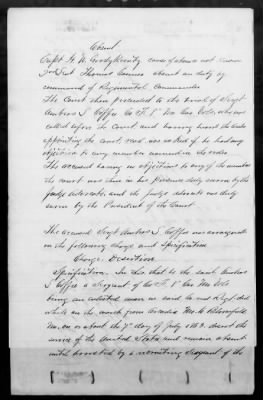 Absent
Capt H. N. cause of absence not known
2nd Lieut Thomas absent on duty by
command of Regimental Commander
The Court then proceeded to the trial of Sergt
Ambros S Coffee Co F. 1" Cav Vols, who was
called before the Court and having heard the order
appointing the court read, was asked if he had any
objection to any member named in the order.
The accused having no objections to any of the members
the court was then in his presence duly sworn by the
Judge Advocate and the Judge Advocate was duly
sworn by the President of the Court
The accused Sergt Ambros S Coffee was arraigned
on the following charge and Specification
Charge. Desertion
Specification. In this that he the said Ambros
S Coffee a Sergeant of Co F. 1" Cav Vols
being an enlisted man in said Co and Regt. did
while on the march from Mo. to Bloomfield
Mo. on or about the 7" day of July 1863. desert the
service of the United States and remain absent
until arrested by a recruiting Sergeant of the